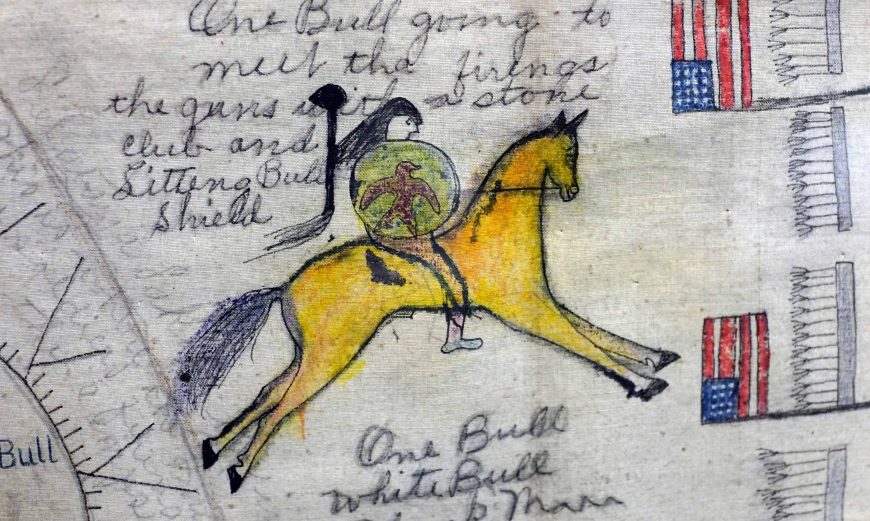 One Bull going to
meet tha firengs
the guns with a stone
club and
Sitteng Bull
Shield
Bull
One Bull
White Bull